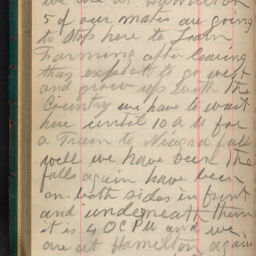 we are at Hamilton
5 of our mates are going
to stop here to Learn
Farming after leaving
they expect to go west
and grow up with the
Country we have to wait
here until 10 A M for
a Train to Niagra falls
well we have been the
falls again have been
on both sides in front
and underneath them
it is 4 OC PM and we
are at Hamilton again